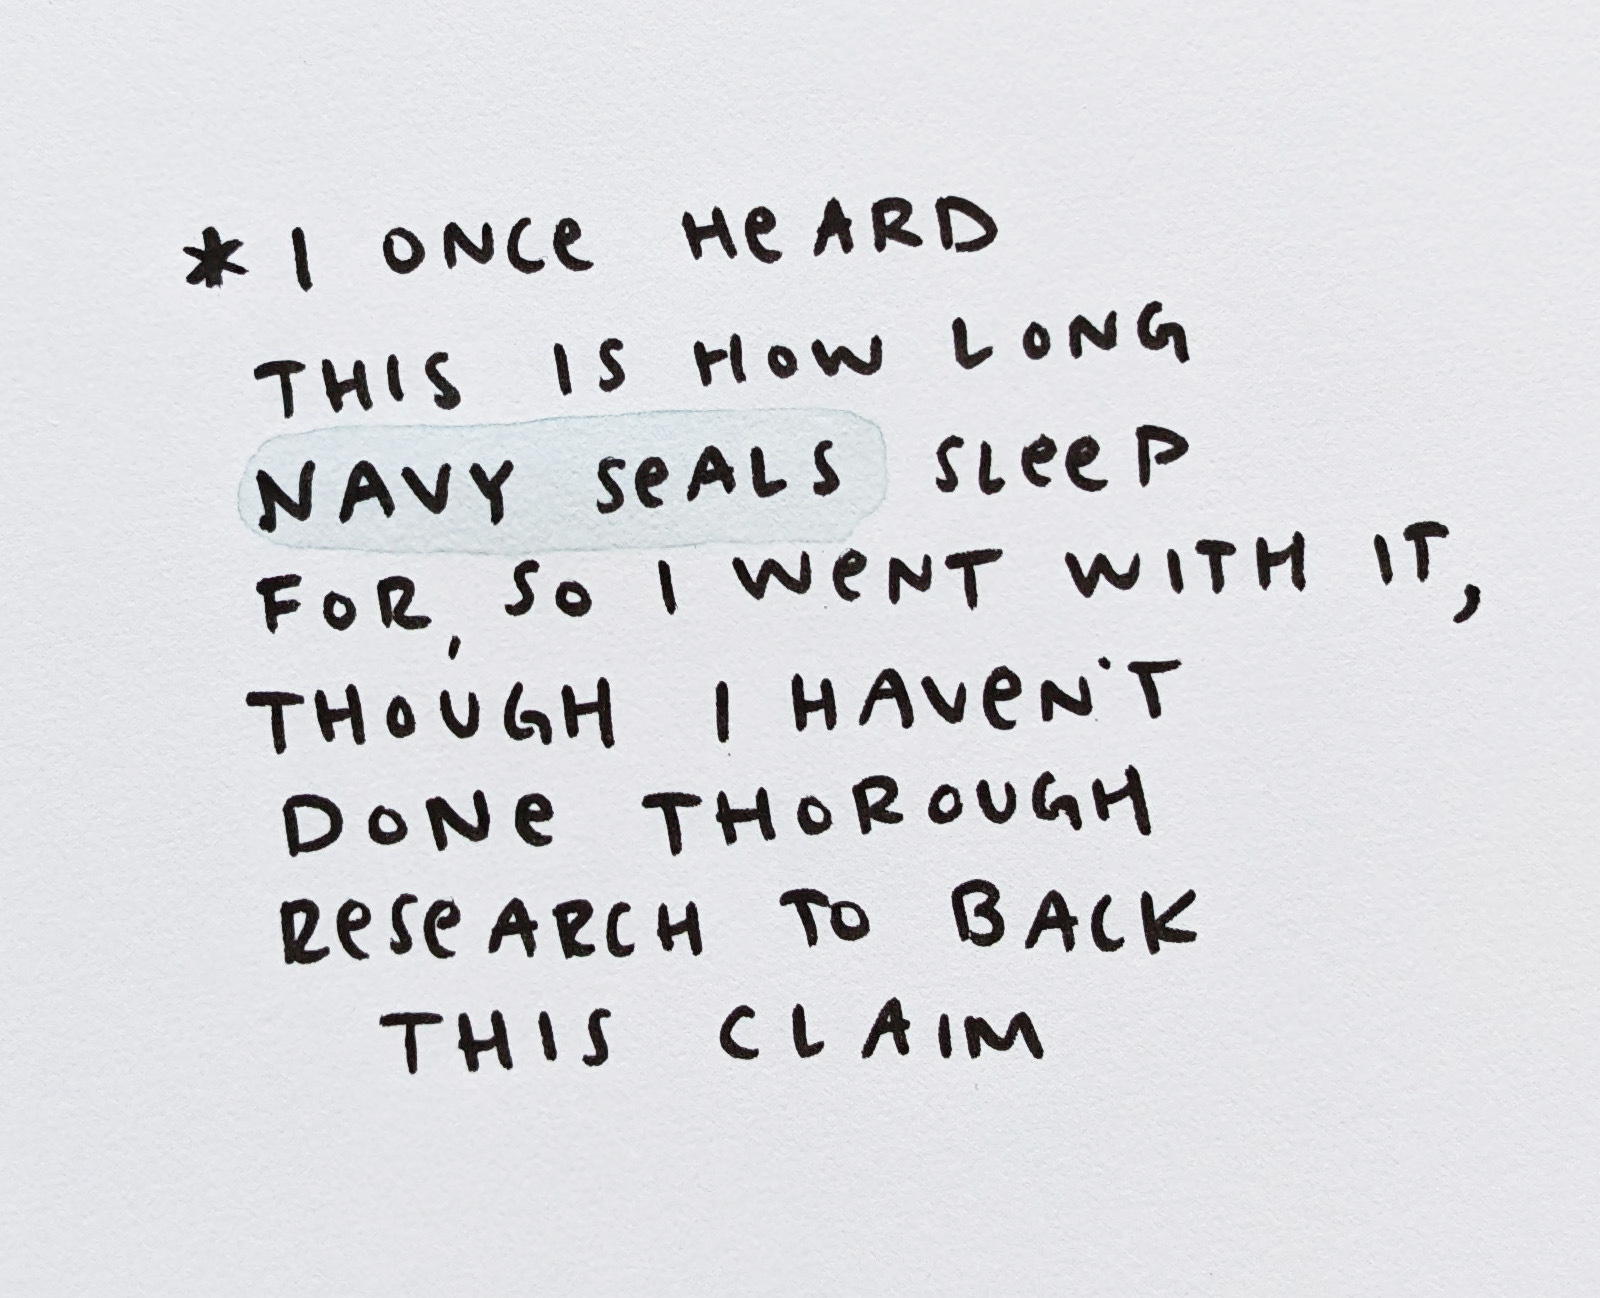 * I ONCE HEARD
THIS IS HOW LONG
NAVY SEALS SLEEP
FOR, SO I WENT WITH IT,
THOUGH I HAVEN'T
DONE THOROUGH
RESEARCH TO BACK
THIS CLAIM